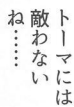 トーマには
敵わない
ね……